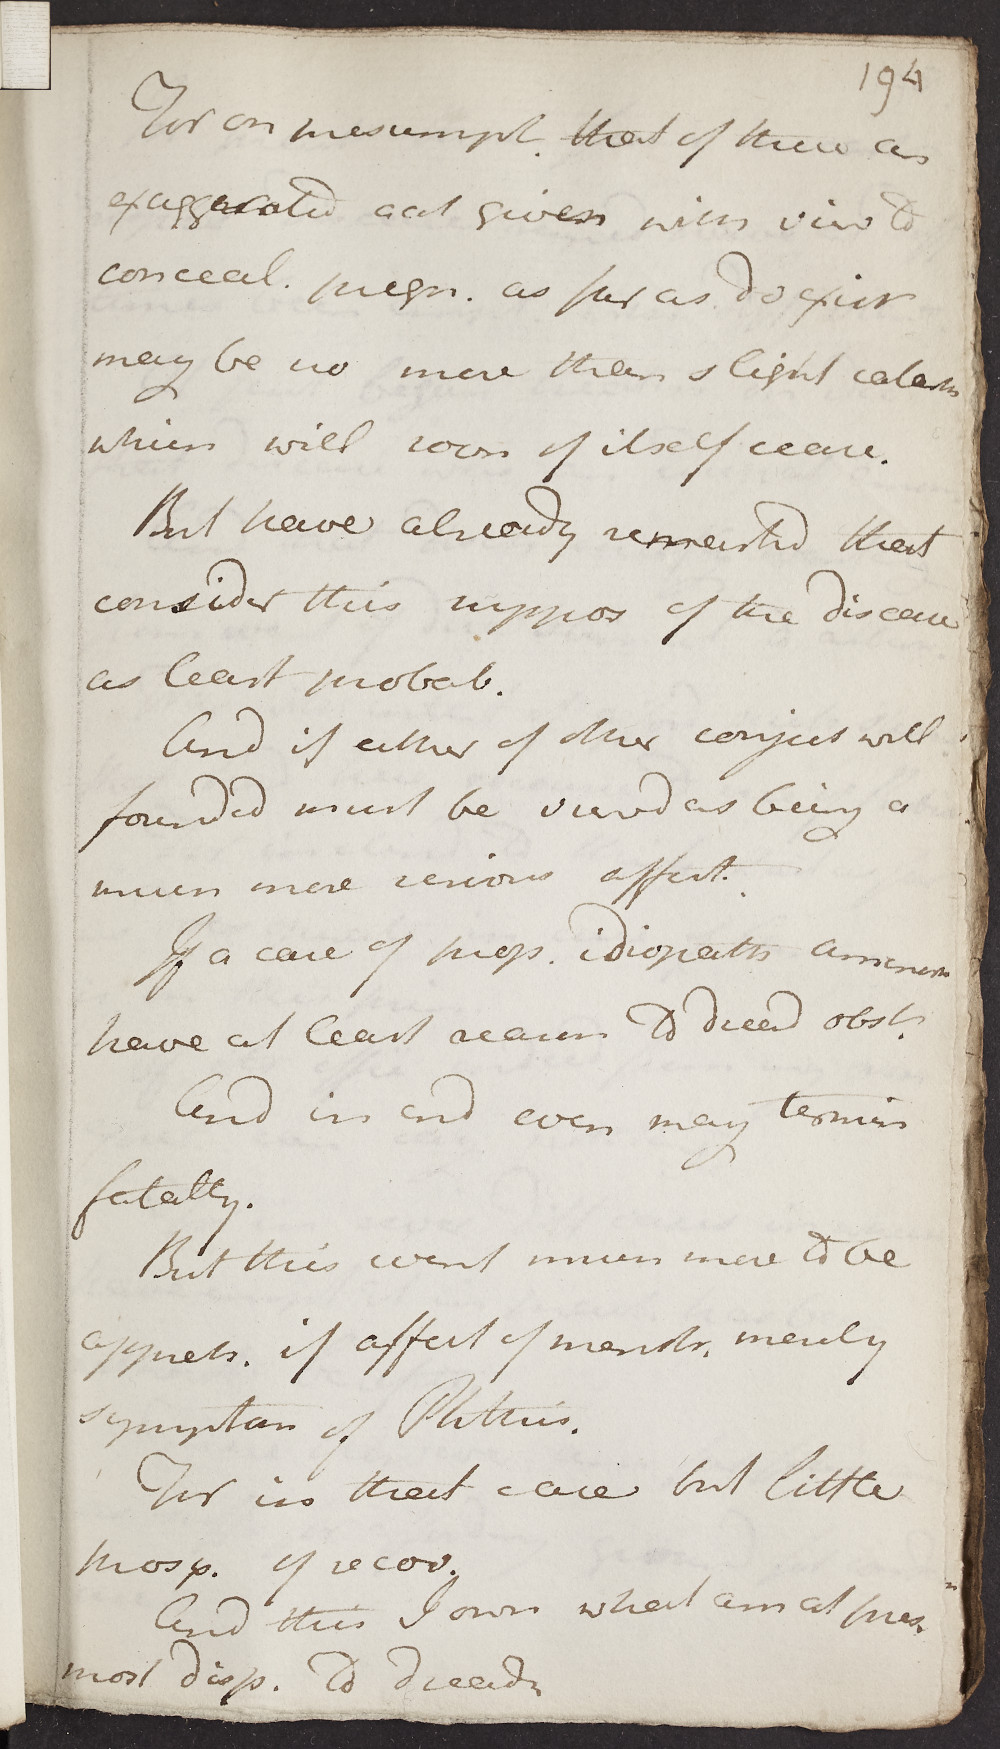 194
For on presumpt. that of these an
exaggerated acct given with view to
conceal. pregn. as far as do exist
may be no more than slight catarrh
which will soon of itself cease.
But have already remarked that
consider this suppos of the disease
as least probab.
And if either of other conject well
founded must be viewd as being a
much more serious affect.
If a case of prop. idiopath amenorrh
have at least reason to dread obst.
And in end even may termin
fatally.
But this event much more to be
appreh. if affect of menstr. merely
symptom of Phthis.
For in that case but little
prosp. of recov.
And this I own what am at pres.
most disp. to dread